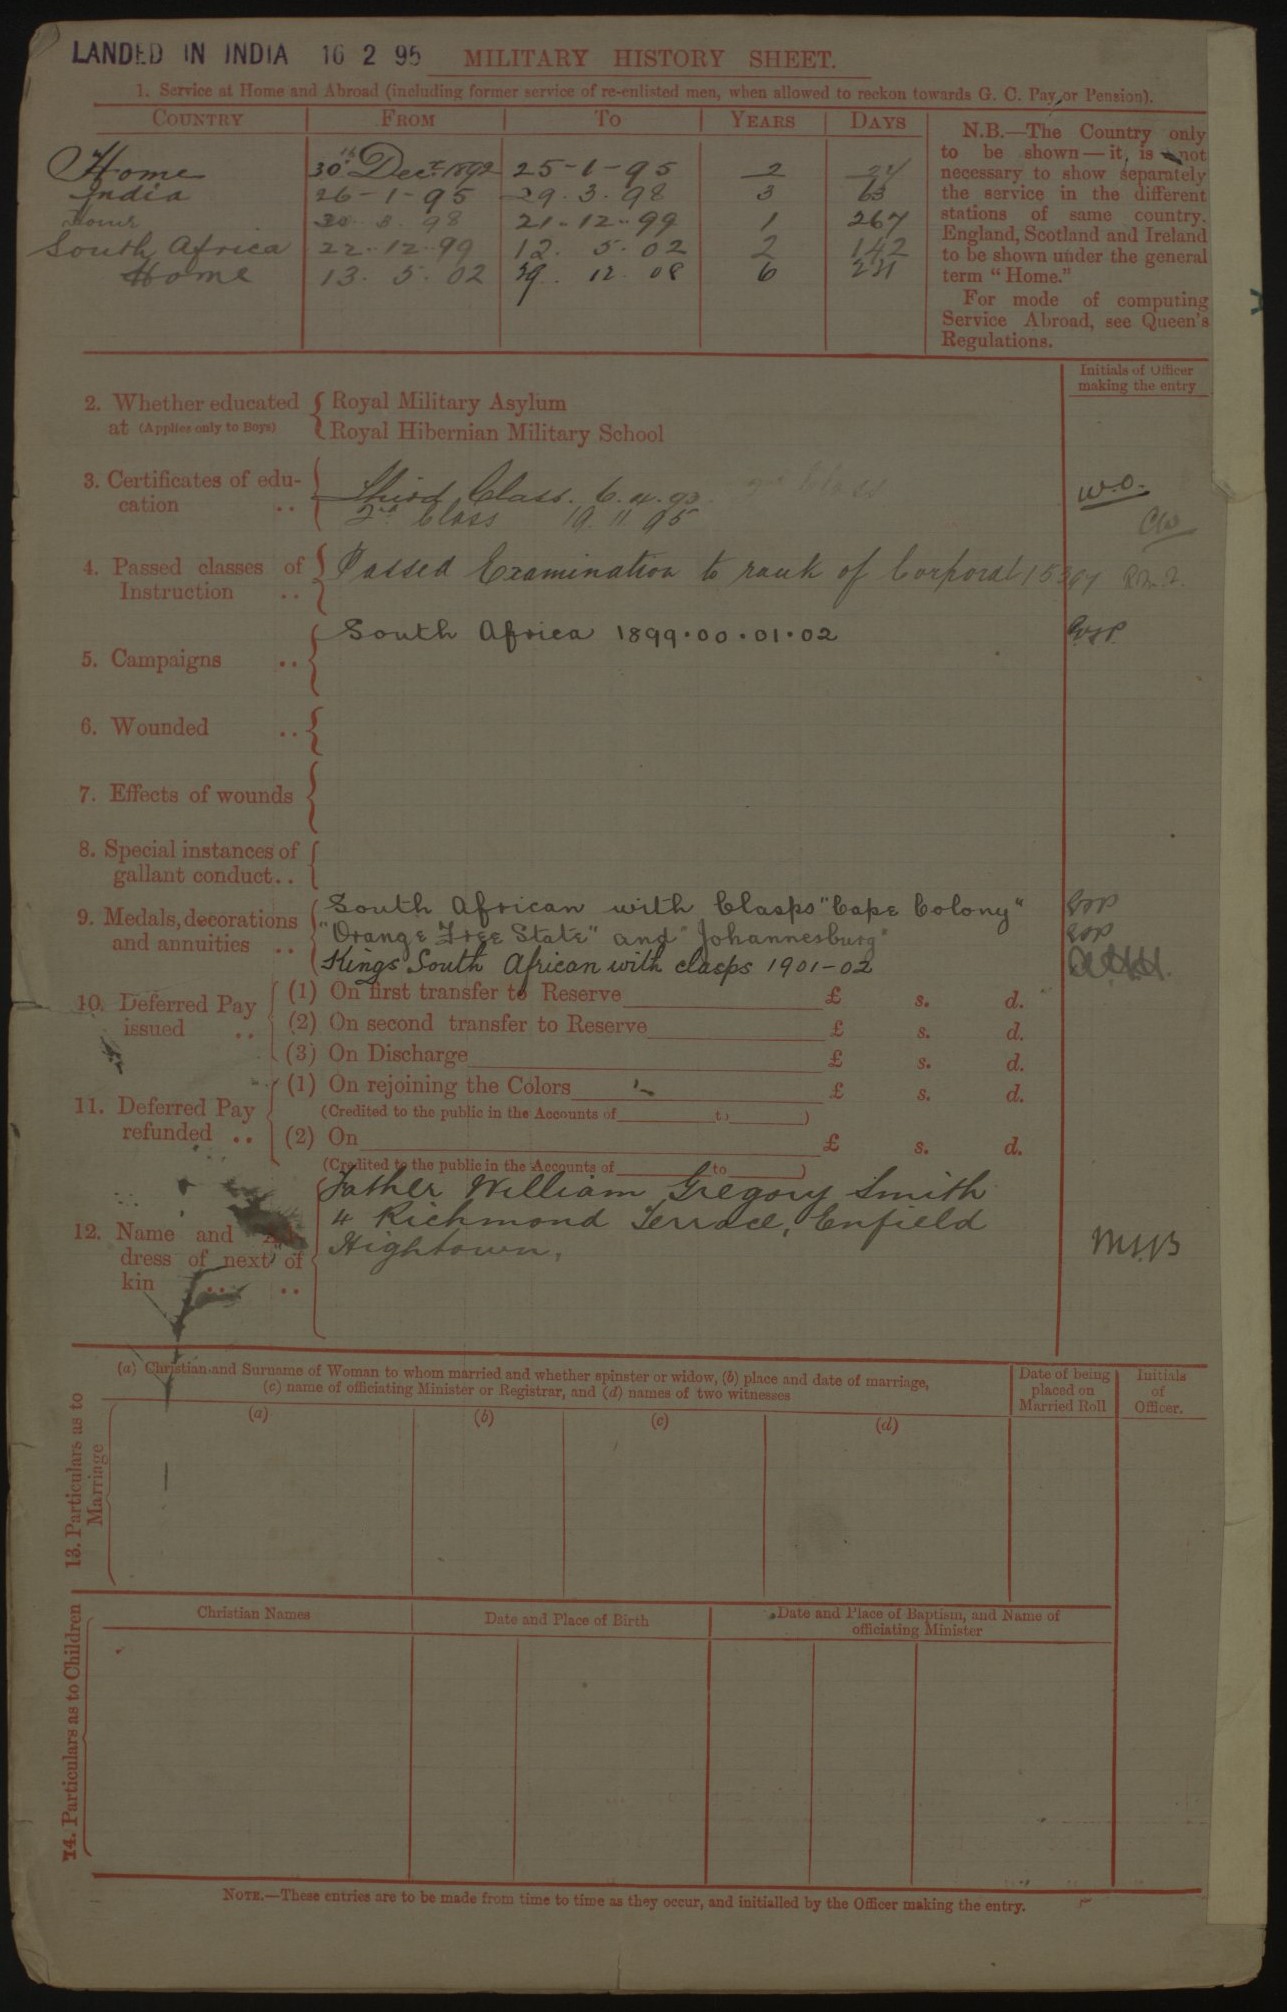 LANDED IN INDIA 16 2 95
MILITARY HISTORY SHEET.
1. Service at Home and Abroad (including former service of re-enlisted men, when allowed to reckon towards G. C. Pay or Pension).
COUNTRY FROM TO YEARS DAYS
Home 30th Decr 1892 25-1-95 2 
India 26-1-95 29.3.98 3 63
Home 30 3 98 21-12-99 1 267
South Africa 22-12-99 12. 5. 02 2 142
Home 13. 5. 02 29. 12. 08 6 231
N.B.—The Country only
to be shown—it is not
necessary to show separately
the service in the different
stations of same country.
England, Scotland and Ireland
to be shown under the general
term "Home."
For mode of computing
Service Abroad, see Queen's
Regulations.
Initials of Officer
making the entry
2. Whether educated
at (Applies only to Boys)
Royal Military Asylum
Royal Hibernian Military School
3. Certificates of edu-
cation ..
Third Class. 6.4.93 2nd Class
2nd Class 19.11.95
W.O.
CW
4. Passed classes of
Instruction ..
Passed Examination to rank of Corporal
5. Campaigns ..
South Africa 1899.00.01.02
6. Wounded ..
7. Effects of wounds
8. Special instances of
gallant conduct..
9. Medals, decorations
and annuities ..
South African with Clasps "Cape Colony"
"Orange Free State" and "Johannesburg"
Kings South African with clasps 1901-02
10. Deferred Pay
issued ..
(1) On first transfer to Reserve £ s. d.
(2) On second transfer to Reserve £ s. d.
(3) On Discharge £ s. d.
11. Deferred Pay
refunded ..
(1) On rejoining the Colors £ s. d.
(Credited to the public in the Accounts of to )
(2) On £ s. d.
(Credited to the public in the Accounts of to )
12. Name and Ad-
dress of next of
kin .. ..
Father William Gregory Smith
4 Richmond Terrace, Enfield
Hightown,
13. Particulars as to
Marriage
(a) Christian and Surname of Woman to whom married and whether spinster or widow, (b) place and date of marriage,
(c) name of officiating Minister or Registrar, and (d) names of two witnesses
Date of being
placed on
Married Roll
Initials
of
Officer.
(a) (b) (c) (d)
14. Particulars as to Children
Christian Names
Date and Place of Birth
Date and Place of Baptism, and Name of
officiating Minister
NOTE.—These entries are to be made from time to time as they occur, and initialled by the Officer making the entry.